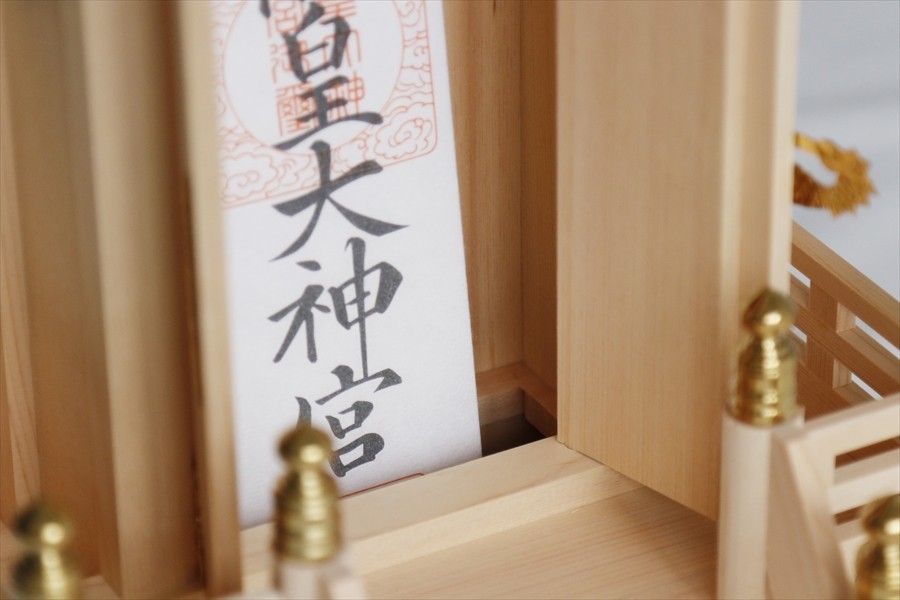 皇大神宮